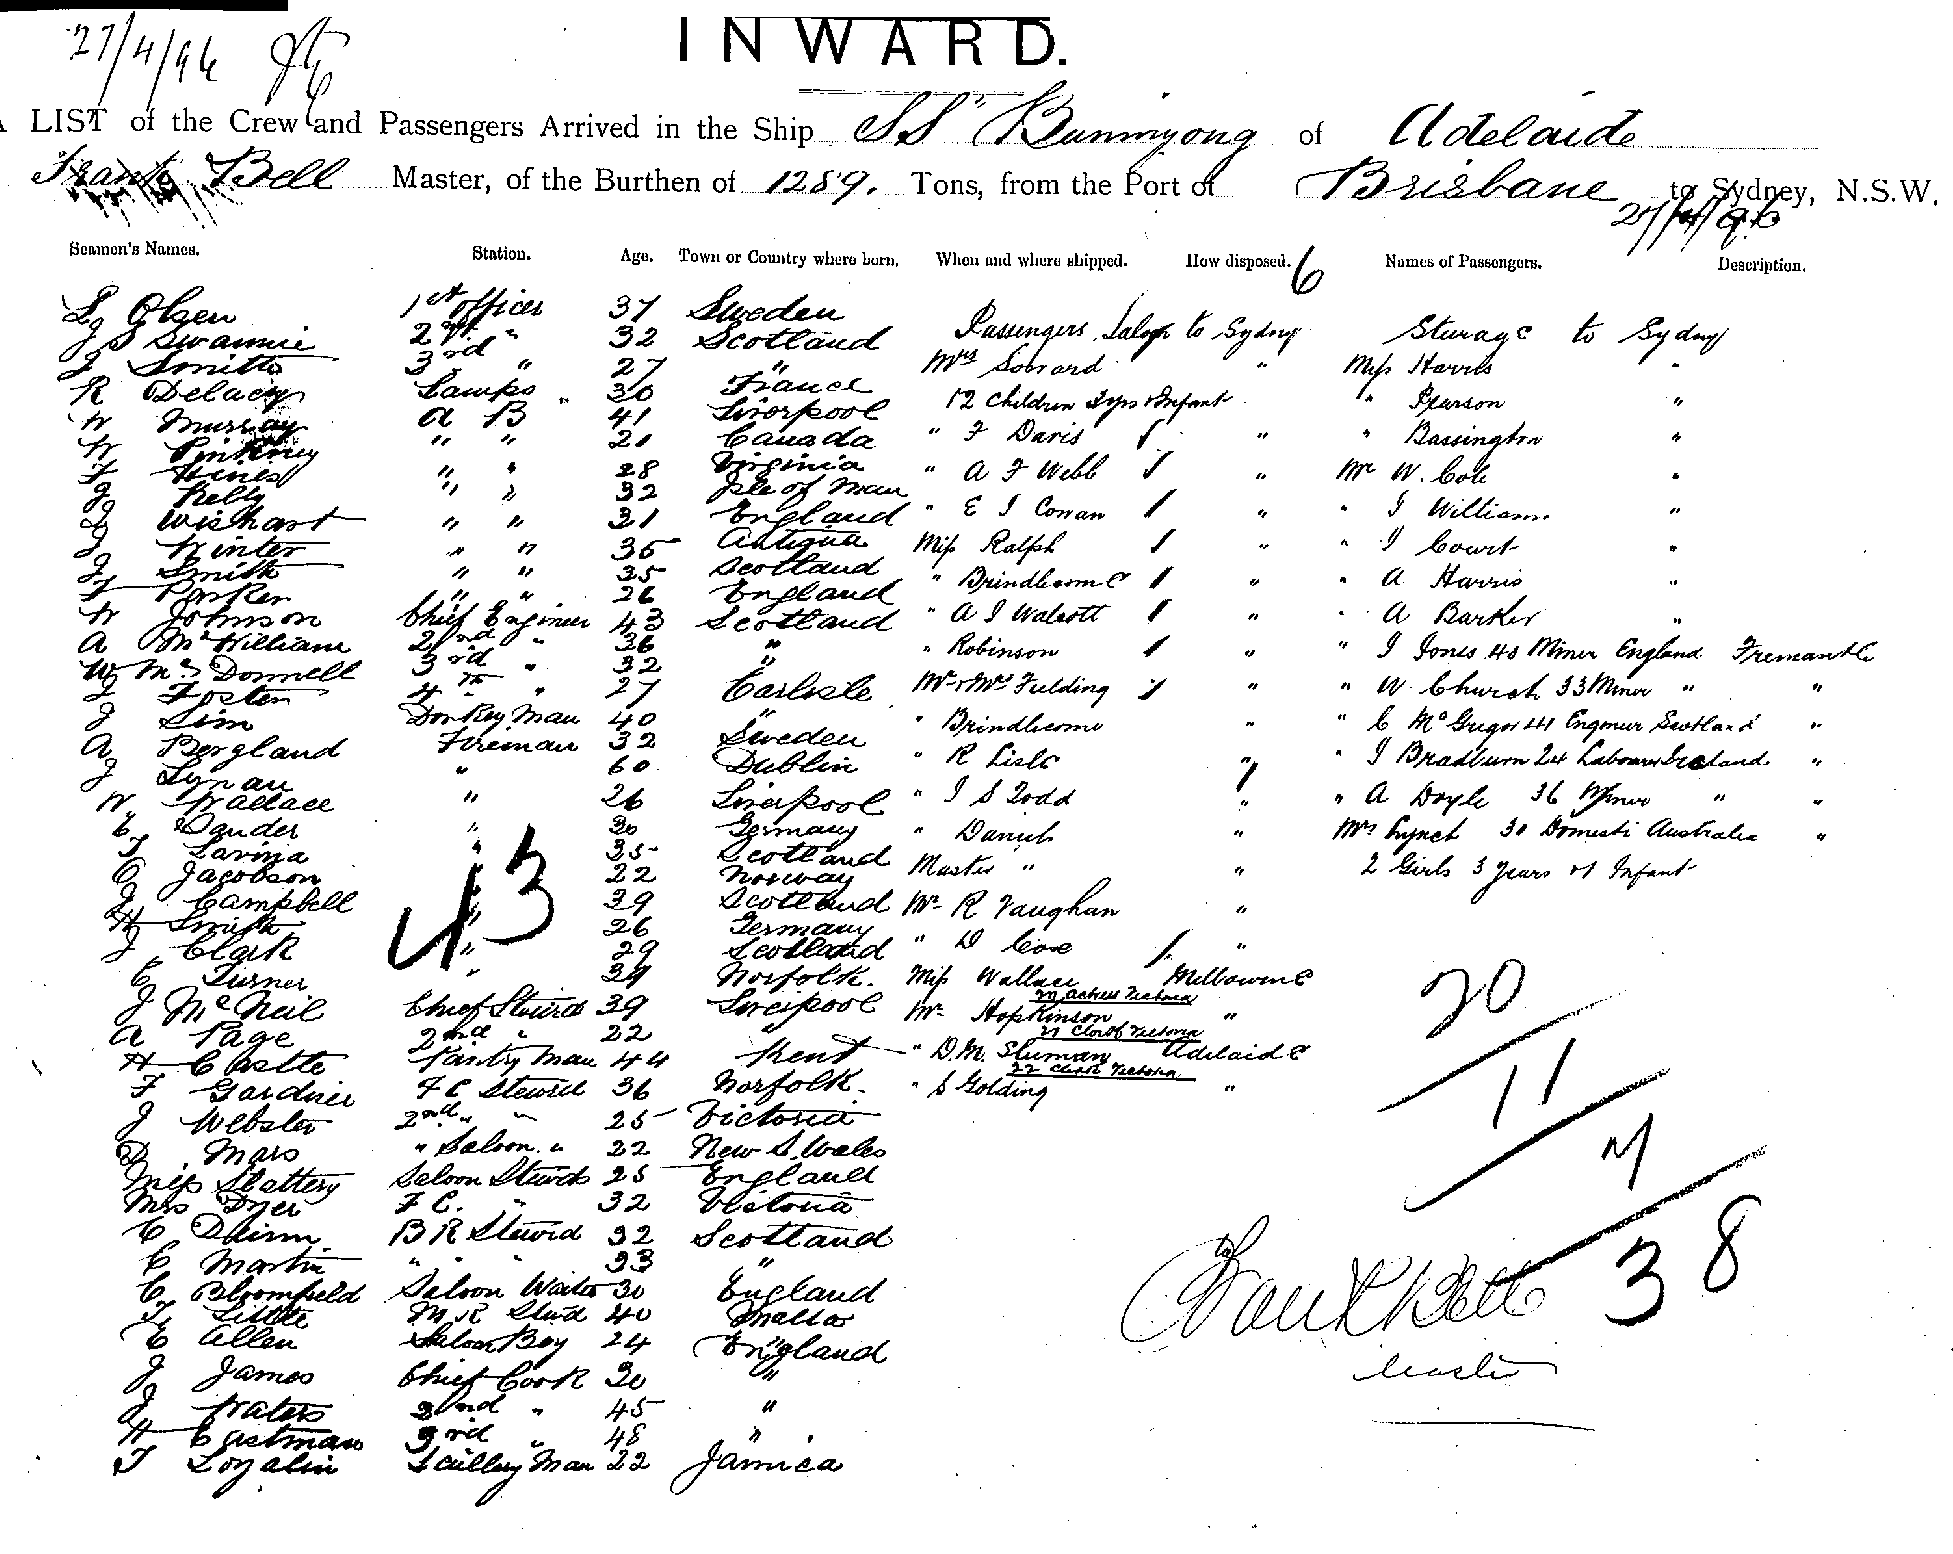 27/4/96
INWARD.
LIST of the Crew and Passengers Arrived in the Ship SS Buninyong of Adelaide
Frank Bell Master, of the Burthen of 1289. Tons, from the Port of Brisbane to Sydney, N.S.W.
27/4/96
Seamen's Names. Station. Age. Town or Country where born. When and where shipped. How disposed. 6 Names of Passengers. Description.
L Olsen 1st officer 37 Sweden
J S Swannie 2nd " 32 Scotland Passengers Saloon to Sydney Sturage to Sydney
J Smith 3rd " 27 " Mrs " Miss Harris "
R Delacy Lamps " 30 France 12 Children " Pearson "
W Murray A B 41 Liverpool " F Davis " " Bassington "
W Pinkney " " 21 Canada
F Hines " " 28 Virginia " A F Webb " Mr W. Cole "
J Kelly " " 32 Isle of Man
J Wishart " " 31 England " E J Cowan " " J Williams "
J Winter " " 35 Antigua Miss Ralph " " J Court "
J Smith " " 35 Scotland " Brindlecombe " " A Harris "
F Parker " " 26 England
W Johnson Chief Engineer 43 Scotland " A J Walcott " " A Barker "
A McWilliam 2nd " 36 " " Robinson " " J Jones 40 Miner England Fremantle
W McDonnell 3rd " 32 "
J Foster 4th " 27 Carlisle Mr & Mrs Fielding " " W Church 33 Miner " "
J Sim Donkey Man 40 " " Brindlecome " " C McGregor 41 Engineer Scotland "
A Bergland Fireman 32 Sweden
J Lynau " 60 Dublin " R Lisle " " J Bradburn 24 Labourer Ireland "
W Wallace " 26 Liverpool " J S Todd " " A Doyle 36 Miner " "
E Sander " 30 Germany " Daniels " Mrs Lynch 30 Domestic Australia "
T Lavina " 35 Scotland
O Jacobson " 22 Norway Master " " 2 Girls 3 years & Infant
J Campbell " 39 Scotland Mr R Vaughan "
H Smith " 26 Germany
J Clark " 29 Scotland " D "
43
C Turner " 39 Norfolk. Miss Wallace Melbourne
Actress Victoria
J McNeil Chief Steward 39 Liverpool Mr Hopkinson "
21 Clerk Victoria
A Page 2nd " 22 "
H Castle Pantry Man 44 Kent " D.M. Sluman Adelaide
22 Clerk Victoria
F Gardner F C Steward 36 Norfolk. " S Golding "
J Webster 2nd " " 25 Victoria
D. Mars " Saloon " 22 New S. Wales
Miss Slattery Saloon Stewds 25 England
Mrs Dyer F C. " 32 Victoria
C B R Steward 32 Scotland
C Martin " " " 33 "
C Bloomfield Saloon Waiter 30 England
T Little M R Stewd 40 Malta
E Allen Saloon Boy 24 England
J James Chief Cook 30 "
J Waters 2nd " 45 "
H Eastman 3rd " 48 "
T Loyalin Scullery Man 22 Jamica
20
11
7
38
Frank Bell
Master